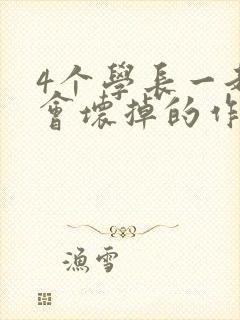 4个學長一
會壞掉的作
漁雪